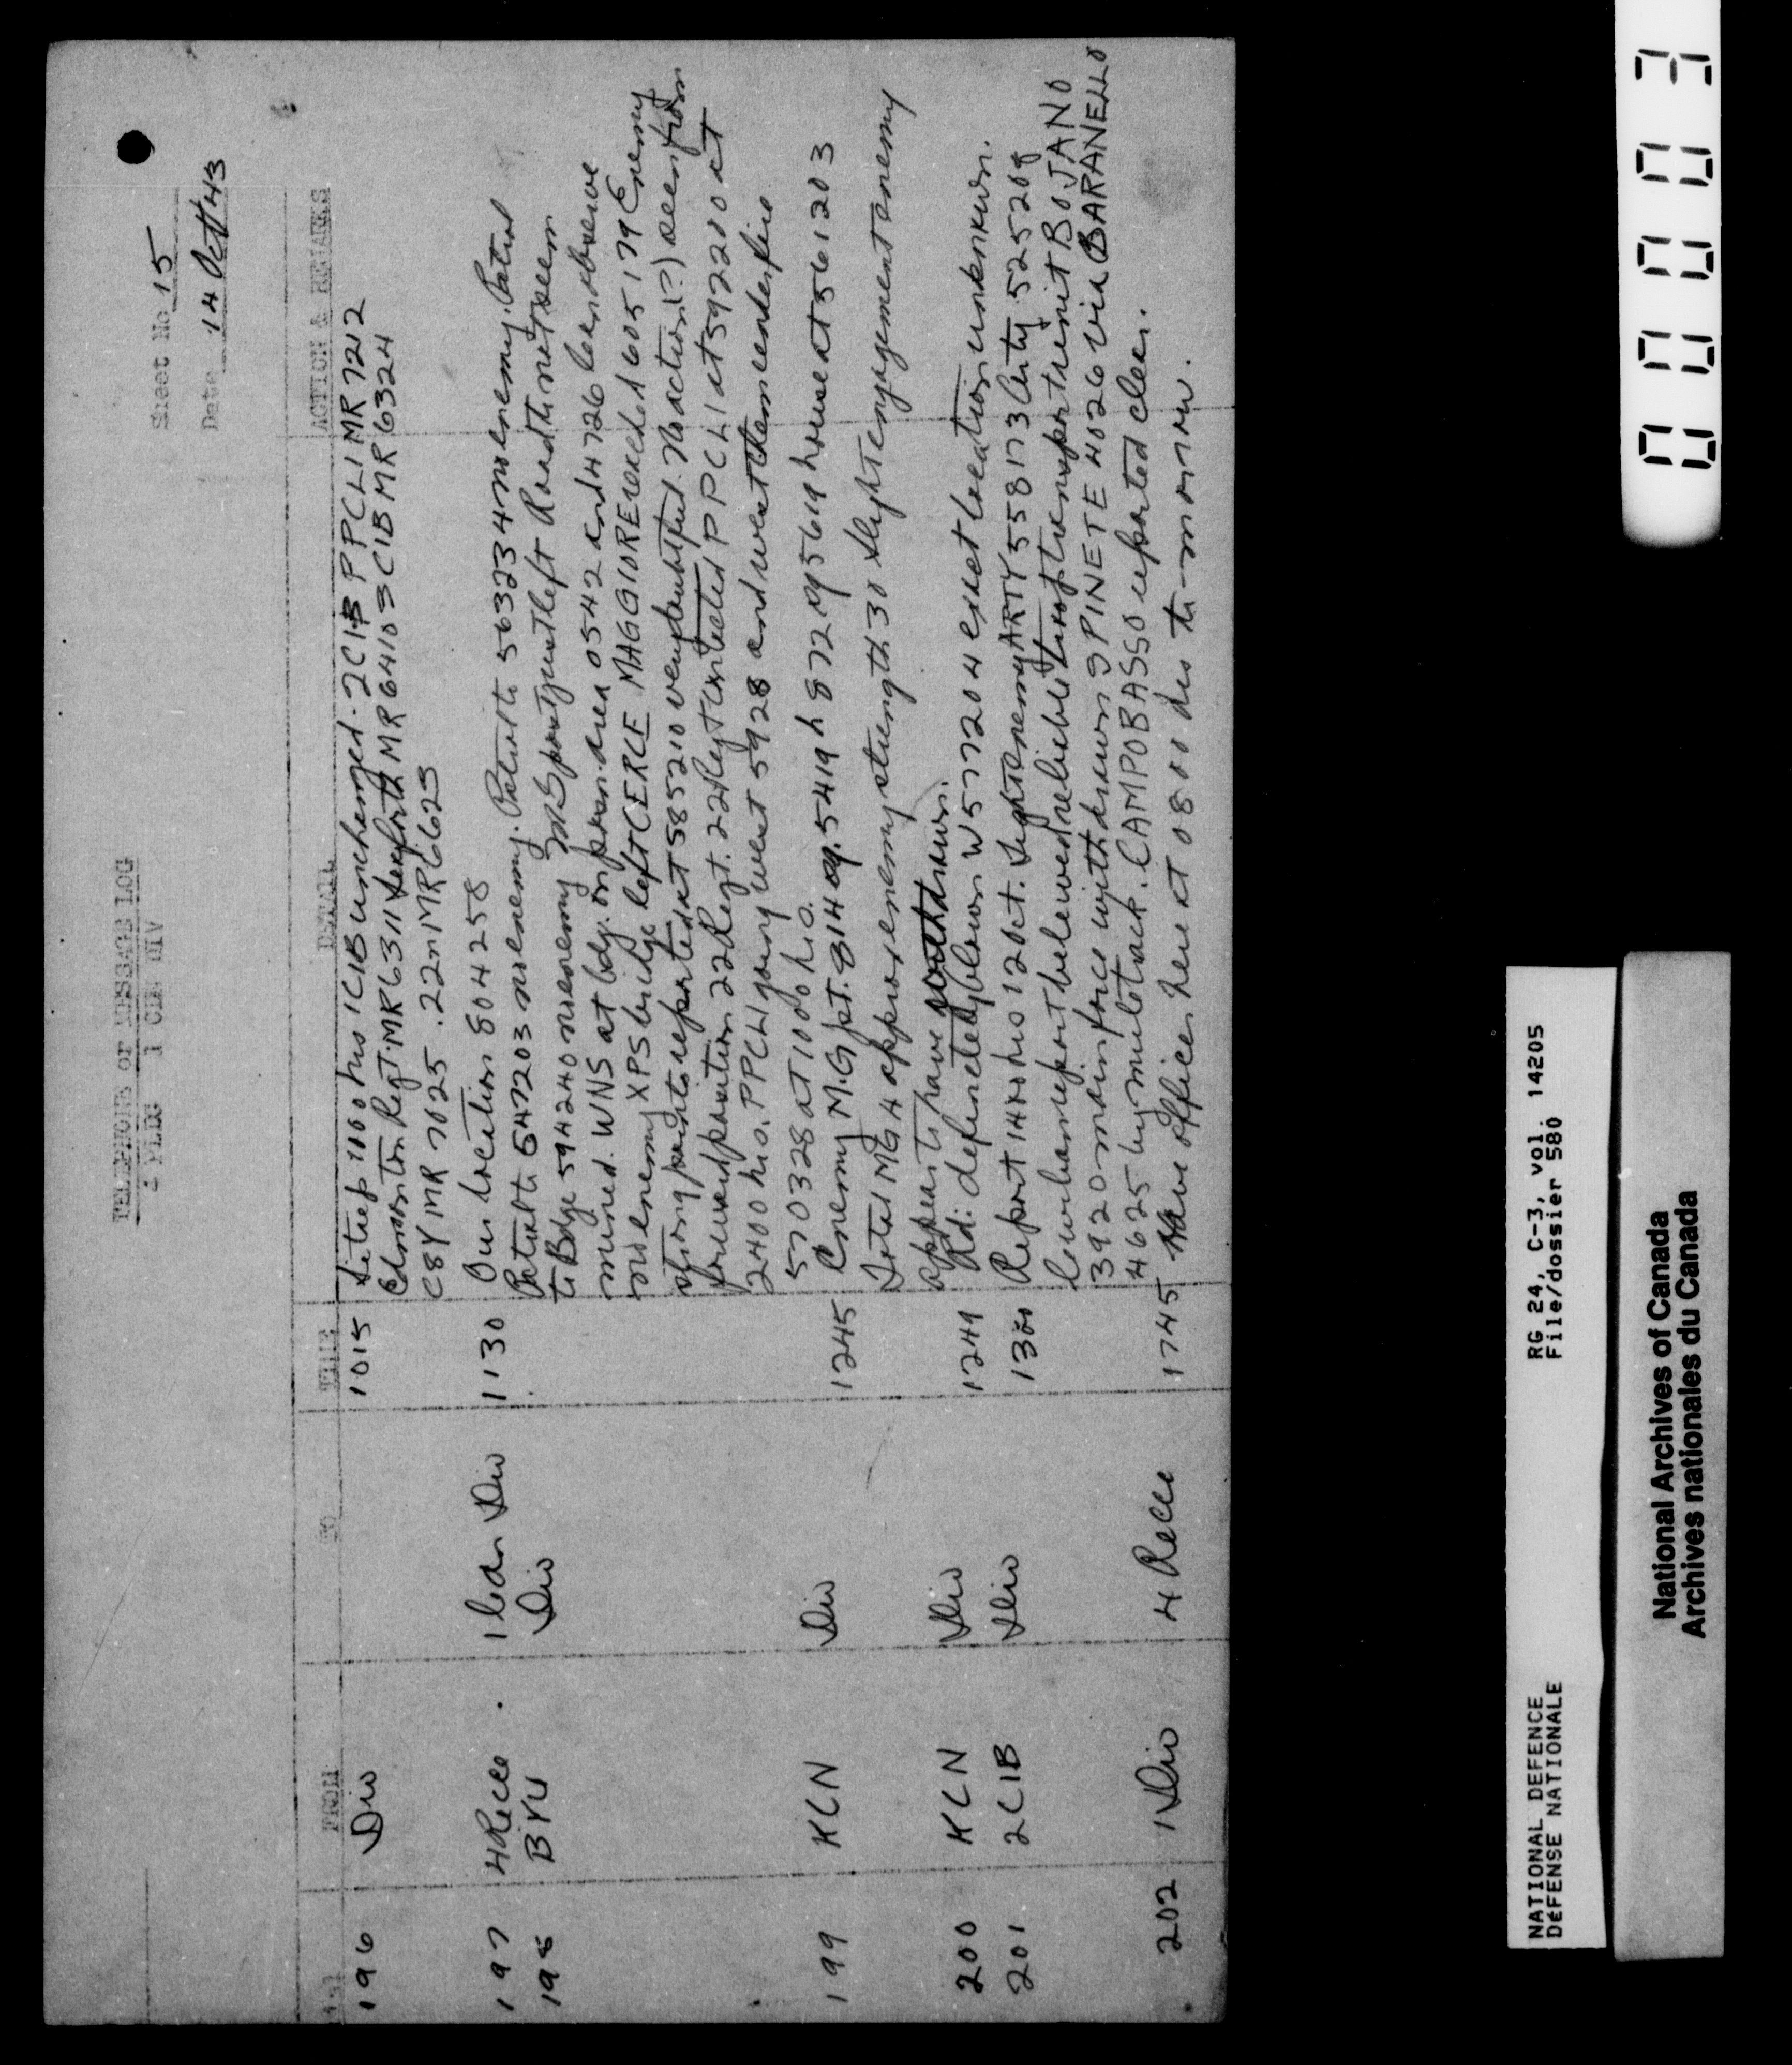 TELEPHONE OR MESSAGE LOG
4 FLDG 1 CDN DIV
Sheet No. 15
Date 14 Oct 43
FROM TO TIME DETAIL ACTION & REMARKS
196 Div 1015 Sitrep 1100 hrs 1CIB unchanged. 2CIB PPCLI MR 7212
Edmonton Regt. MR 6311 Seaforth MR 6410 3CIB MR 6324
C8Y MR 7025 . 22n MR 6625
197 4 Recce 1 Cdn Div 1130 Our location 804258
198 BYU Div Patrol to 547203 no enemy. Patrol to 563234 no enemy. Patrol
to Bdge 594240 no enemy
mined. WNS at bdg. in area 0542 and 4726 can observe
no enemy XPS bridge left CERCE MAGGIORE reached 605179 Enemy
strong point reported at 585210 very doubtful. No action (?) seen from
forward position 22 Regt. 22 Regt contacted PPCLI at 592220 at
2400 hrs. PPCLI going west 5928 and west them under fire
570328 at 1000 hrs.
199 KLN Div 1245 Enemy M.G pt. 5419 h 872 5619 house at 561203
Total MG 4 approx enemy strength 30 slight engagement enemy
appear to have withdrawn.
200 KLN Div 1249 Rd. definitely blown W 577204 exact location unknown.
201 2CIB Div 1300 Report 1440 hrs 12 Oct. Light enemy ARTY 558173 Arty 525208
report believed reliable troops transport unit BOJANO
3920 main force withdrawn SPINETE 4026 via BARANELLO
4625 by mule track. CAMPOBASSO reported clear.
202 1 Div 4 Recce 1745 Have officer here at 0800 hrs to-morrow.
NATIONAL DEFENCE RG 24, C-3, vol. 14205
DÉFENSE NATIONALE File/dossier 580
National Archives of Canada
Archives nationales du Canada
00003